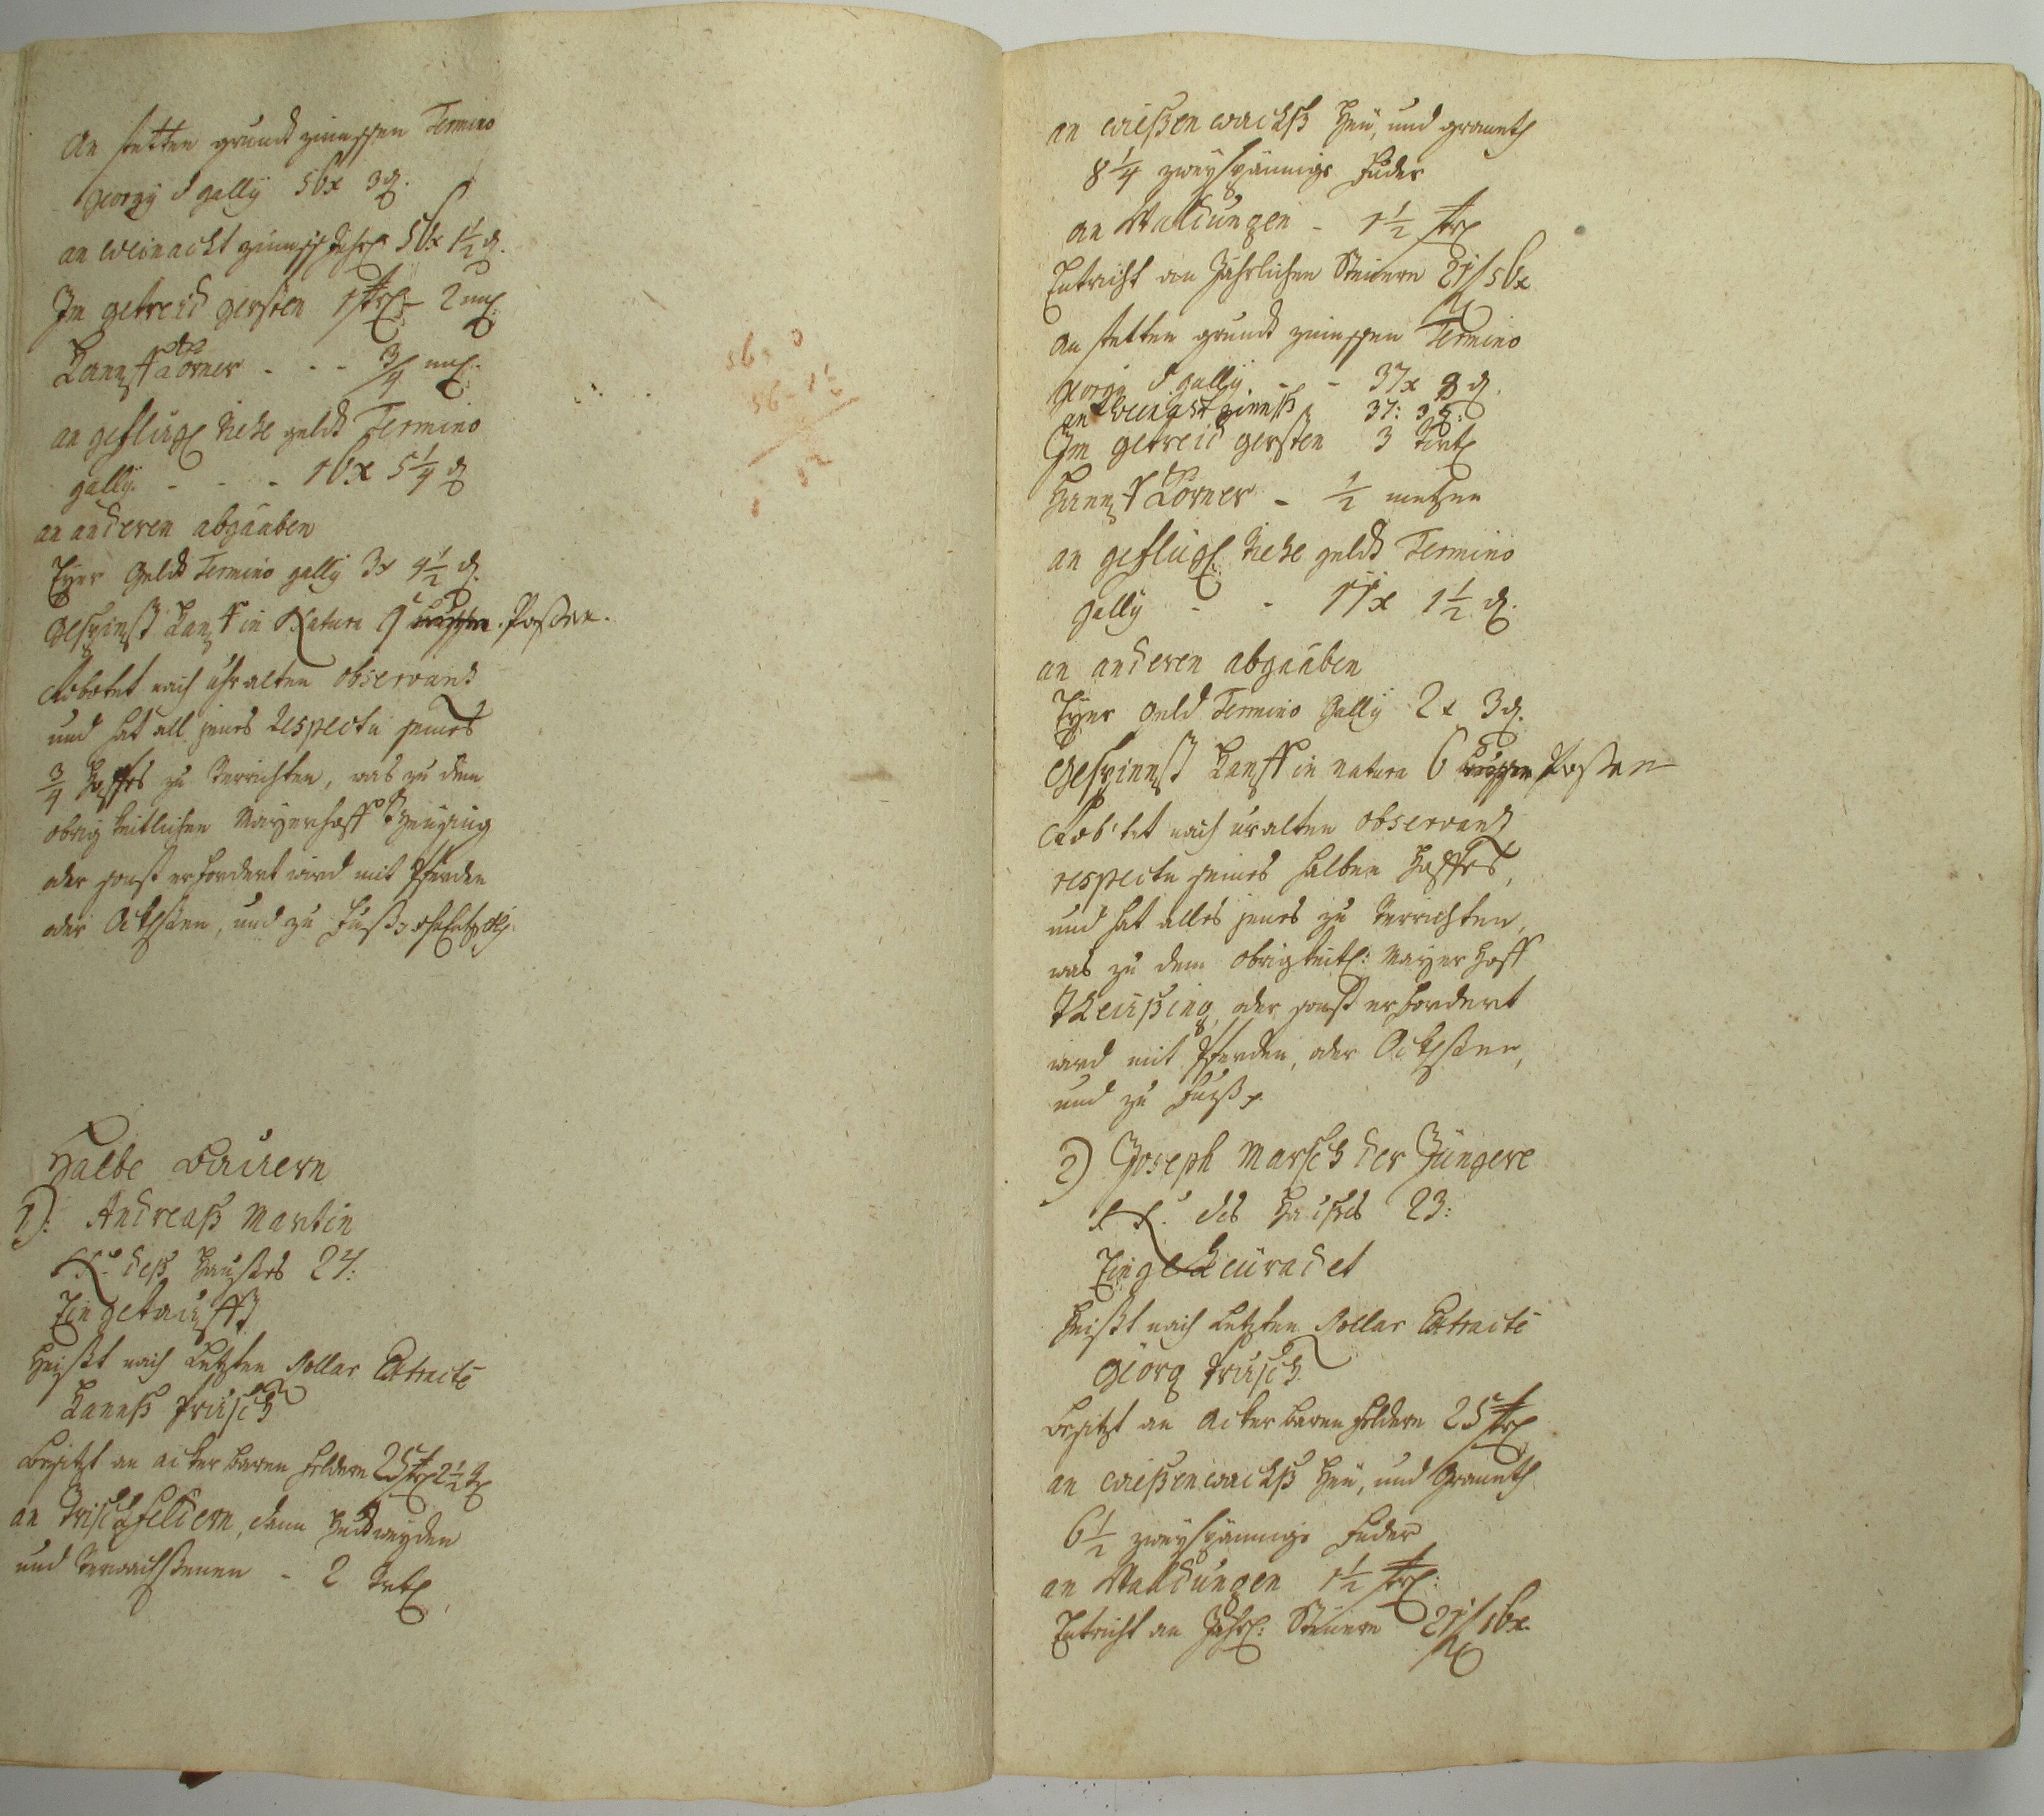 An stetten grundt zinnssen Termino
Georgy & Gally 56x 3₰.
an Weinacht zinnß Jahrl: 56x 1½ ₰.
Im getreid gersten 1 strl: 2 mL:
Hanff Körner - - - ¾ mL:
an geflügl Viehe geldt Termino
gally. - - - 16x 5¼ ₰
an anderen abgaaben
Eyer Geldt Termino gally 3x 4½ ₰.
Gespinnst Hanff in Natura 9 Posten.
Robotet nach uhralten observanz
und hat all jenes Respectu seines
¾ Hoffes zu Verrichten, was zu dem
obrigkeitlichen Mayerhoff Theusing
oder sonst erfordert wird mit Pferden
oder Ochsen, und zu Fuß
56 - 3
56 - 1½
Halbe Bauern
1): Andreaß Martin
N: deß Haußes 24:
Eingekaufft
Heißt nach Letzten Rollar Extracte
Hannß Prusch
Besitzt an acker baren Feldern 25 strl 2½ V
an Trischfeldern, dann Huttweyden
und Verwachßenen - 2 Vrtl
an Wießenwachß Heu, und Grameth
8¼ zweyspännige Fuder
an Waldungen - 1½ strl
Entricht an Jährlichen Steuern 21 f 56x
an stetten grundt zinnssen Termino
Georgy & gally. - - 37x 3 ₰.
an Weinacht zinnß 37: 3 ₰:
Im getreid gersten 3 Virtl
Hanff Körner - ½ metzen
an geflügl: Viehe geldt Termino
gally - - 11x 1½ ₰.
an anderen abgaaben
Eyer geld Termino Gally 2x 3₰.
Gespinnst Hanff in natura 6 Posten
Robotet nach uralten observanz
respectu seines halben Hoffes,
und hat alles jenes zu Verrichten,
was zu dem obrigkeitl: Mayer Hoff
Theußing, oder sonst erfordert
wird mit Pferden, oder Ochsen,
und zu Fuß
2) Joseph Marsch der Jüngere
N: des Haußes 23:
Eingeheuradet
Heißt nach Letzten Rollar Extracte
Georg Prusch
Besitzt an Acker baren Feldern 25 strl
an Wießenwachß Heu, und Grameth
6½ zweyspännige Fuder
an Waldungen 1½ strl:
Entricht an Jahrl: Steuern 21 f 16x